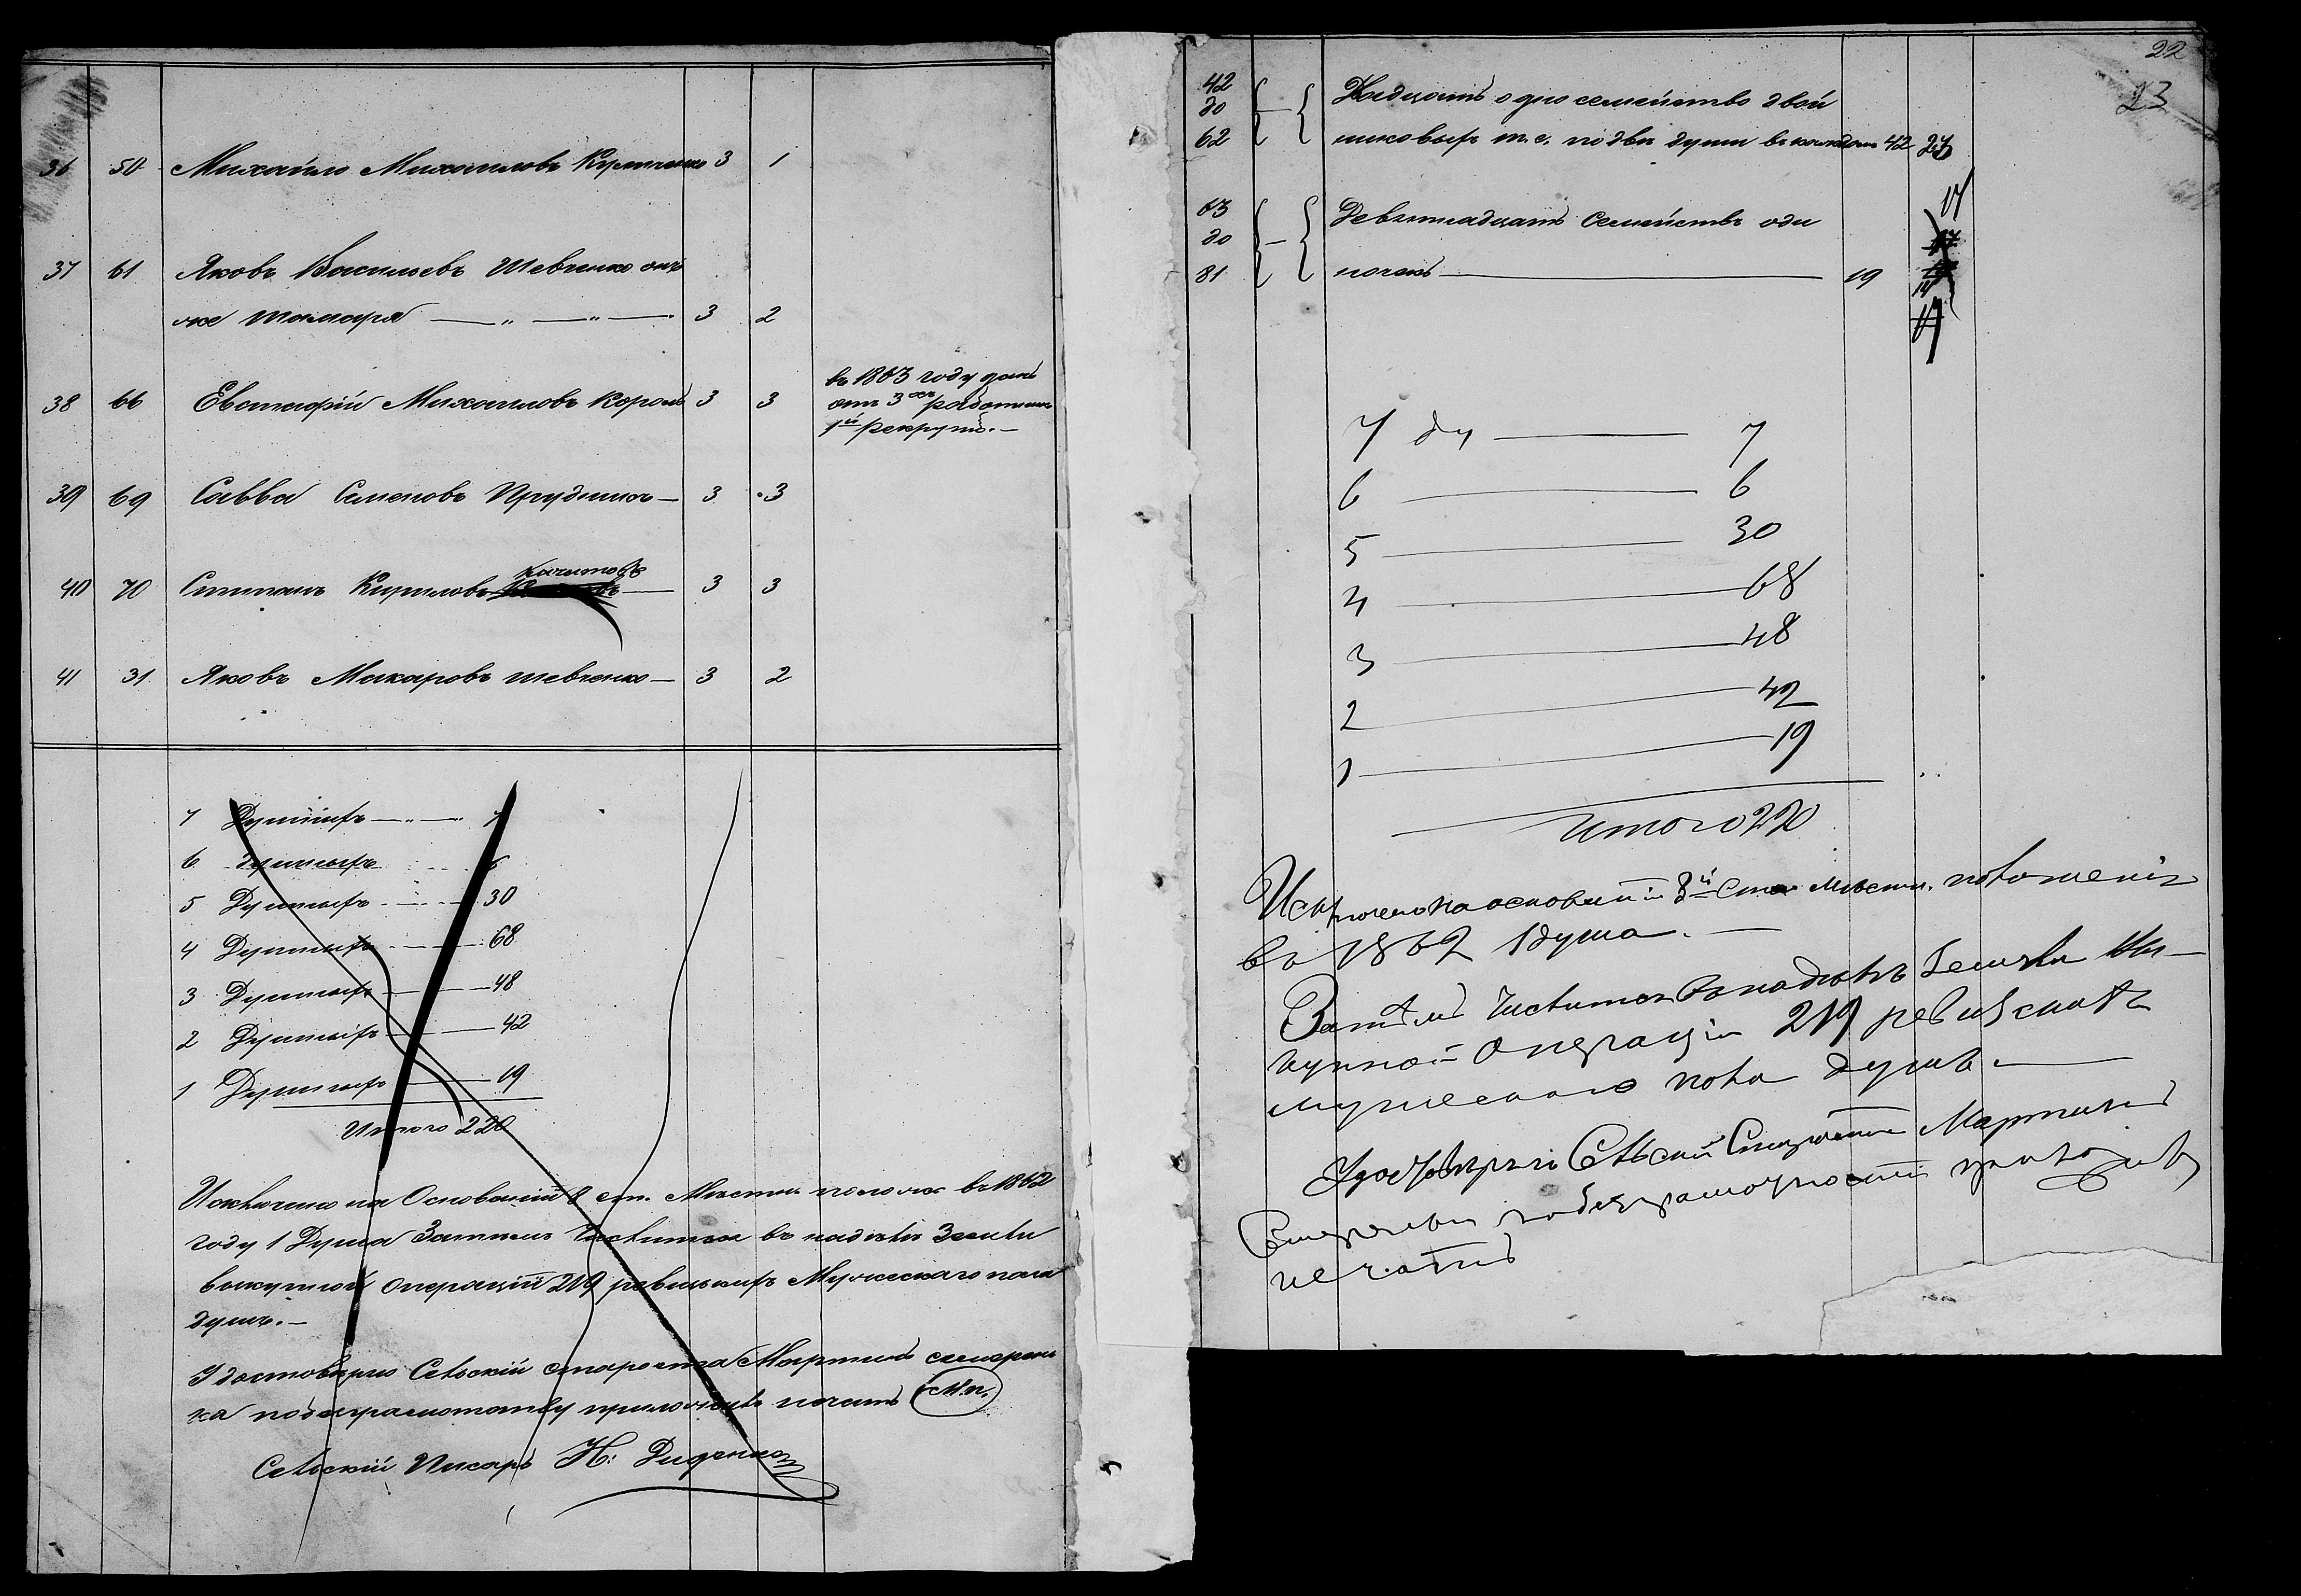 36 50 Михайло Михайловъ 3 1
37 61 Яковъ Васильевъ Шевченко онъ
же 3 2
38 66 Евстафій Михайловъ Король 3 3
въ 1863 году данъ
отъ 3хъ работник
1й рекрутъ.—
39 69 Савва Семеновъ Прудникъ — 3 3
40 70 Степанъ Кириловъ — 3 3
41 31 Яковъ Макаровъ Шевченко — 3 2
7 Душныхъ — „ — 7
6 Душныхъ 6
5 Душныхъ 30
4 Душныхъ 68
3 Душныхъ 48
2 Душныхъ 42
1 Душныхъ 19
Итого 220
Исключено на Основаніи 8 ст. Мѣстн полож въ 1862
году 1 Душа Затѣмъ Числится въ надѣлѣ Земли
выкупной операціи 219 ревизкихъ Мужескаго пола
душъ.—
Удостовѣряю Сельскій староста Мартинъ
ка приложилъ печать М.п.
Сельскій Писарь Н: Диденко
22
23
42
до
62
одно семейство двой
никовыхъ т.е. по двѣ души въ каждомъ 42
63
до
81
Девятнадцать Семействъ оди
ночекъ — 19
7 ду — 7
6 — 6
5 — 30
4 — 68
3 — 48
2 — 42
1 — 19
Итого 220
Исключено на основаніи 8й Мѣстн. положенія
въ 1862 1 душа.—
Затѣмъ Числится въ надѣлѣ Земли Вы-
купной Операціи 219 ревизскихъ
мужескаго пола душъ —
Удостовѣряю Сельскій Мартинъ
печать